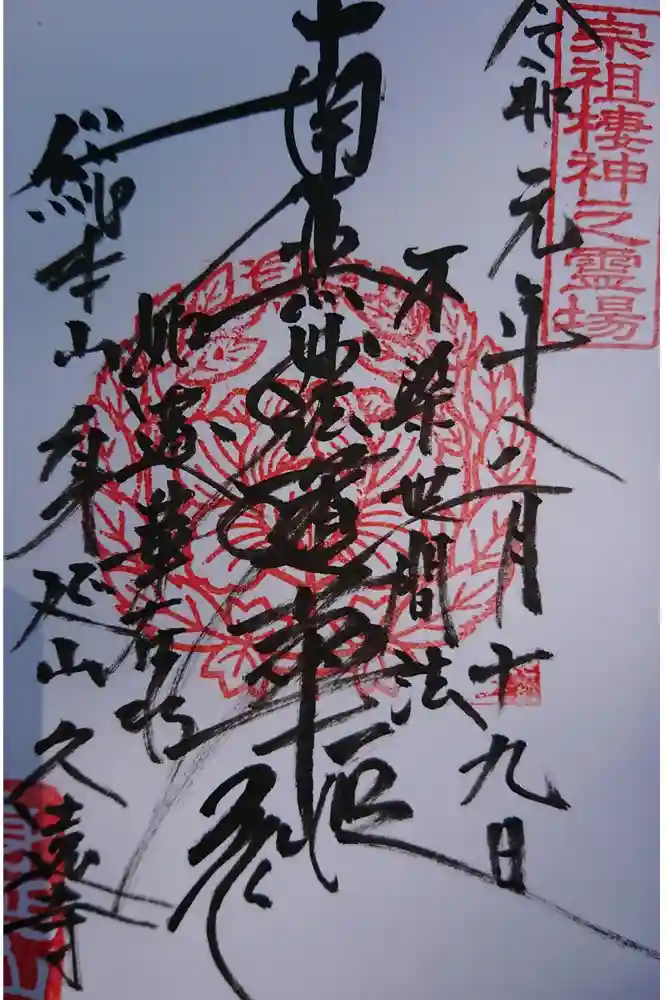 宗祖棲神之霊場
令和元年八月十九日
不染世間法
南無妙法蓮華経
如蓮華在水
総本山身延山久遠寺